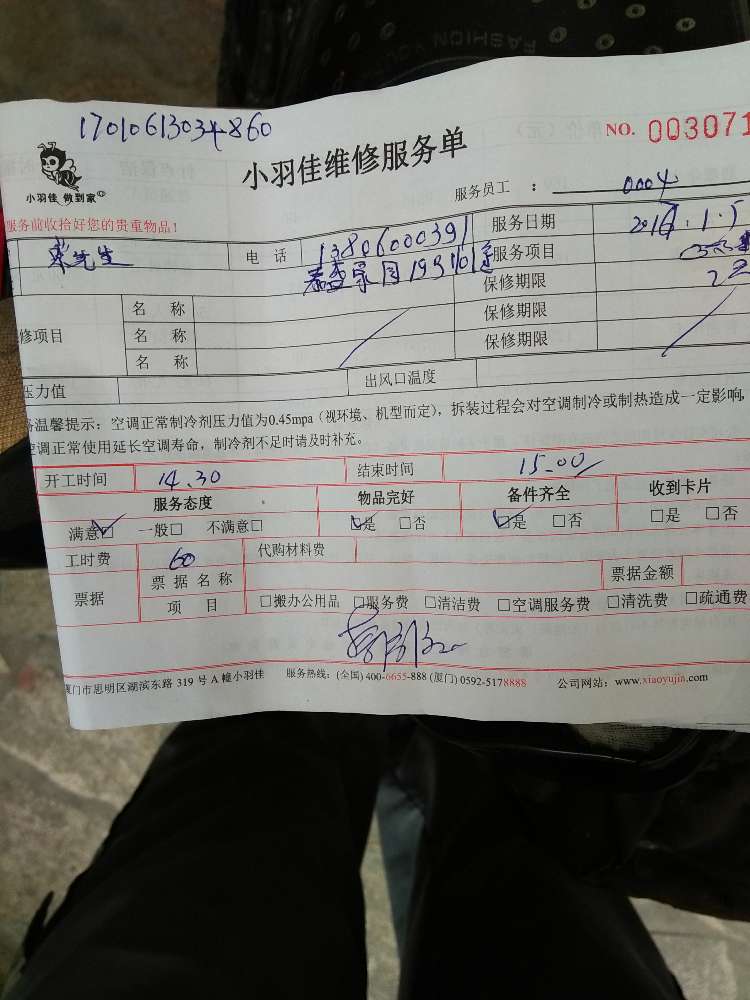 FASHION
17010613034860
小羽佳维修服务单
NO. 003071
小羽佳 做到家
服务员工 : 0004
服务前收拾好您的贵重物品!
先生 电 话 13806000391 服务日期 1.5
服务项目
保修期限
修项目 名 称 保修期限
名 称 保修期限
名 称
压力值 出风口温度
温馨提示:空调正常制冷剂压力值为0.45mpa(视环境、机型而定),拆装过程会对空调制冷或制热造成一定影响,
空调正常使用延长空调寿命,制冷剂不足时请及时补充。
开工时间 14.30 结束时间 15.00
服务态度 物品完好 备件齐全 收到卡片
满意☑ 一般□ 不满意□ ☑是 □否 ☑是 □否 □是 □否
工时费 60 代购材料费
票据 票据名称 票据金额
项 目 □搬办公用品 □服务费 □清洁费 □空调服务费 □清洗费 □疏通费
厦门市思明区湖滨东路 319 号 A 幢小羽佳 服务热线:(全国) 400-6655-888 (厦门) 0592-5178888 公司网站:www.xiaoyujia.com